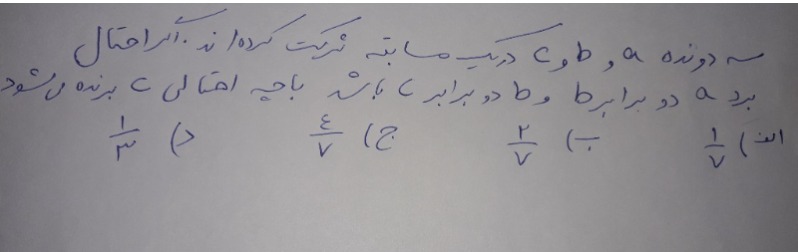 سه دونده a و b و c در یک مسابقه شرکت کرده اند. اگر احتمال
برد a دو برابر b و b دو برابر c باشد با چه احتمالی c برنده می شود
الف) ۱/۷ ب) ۲/۷ ج) ٤/۷ د) ۱/۳